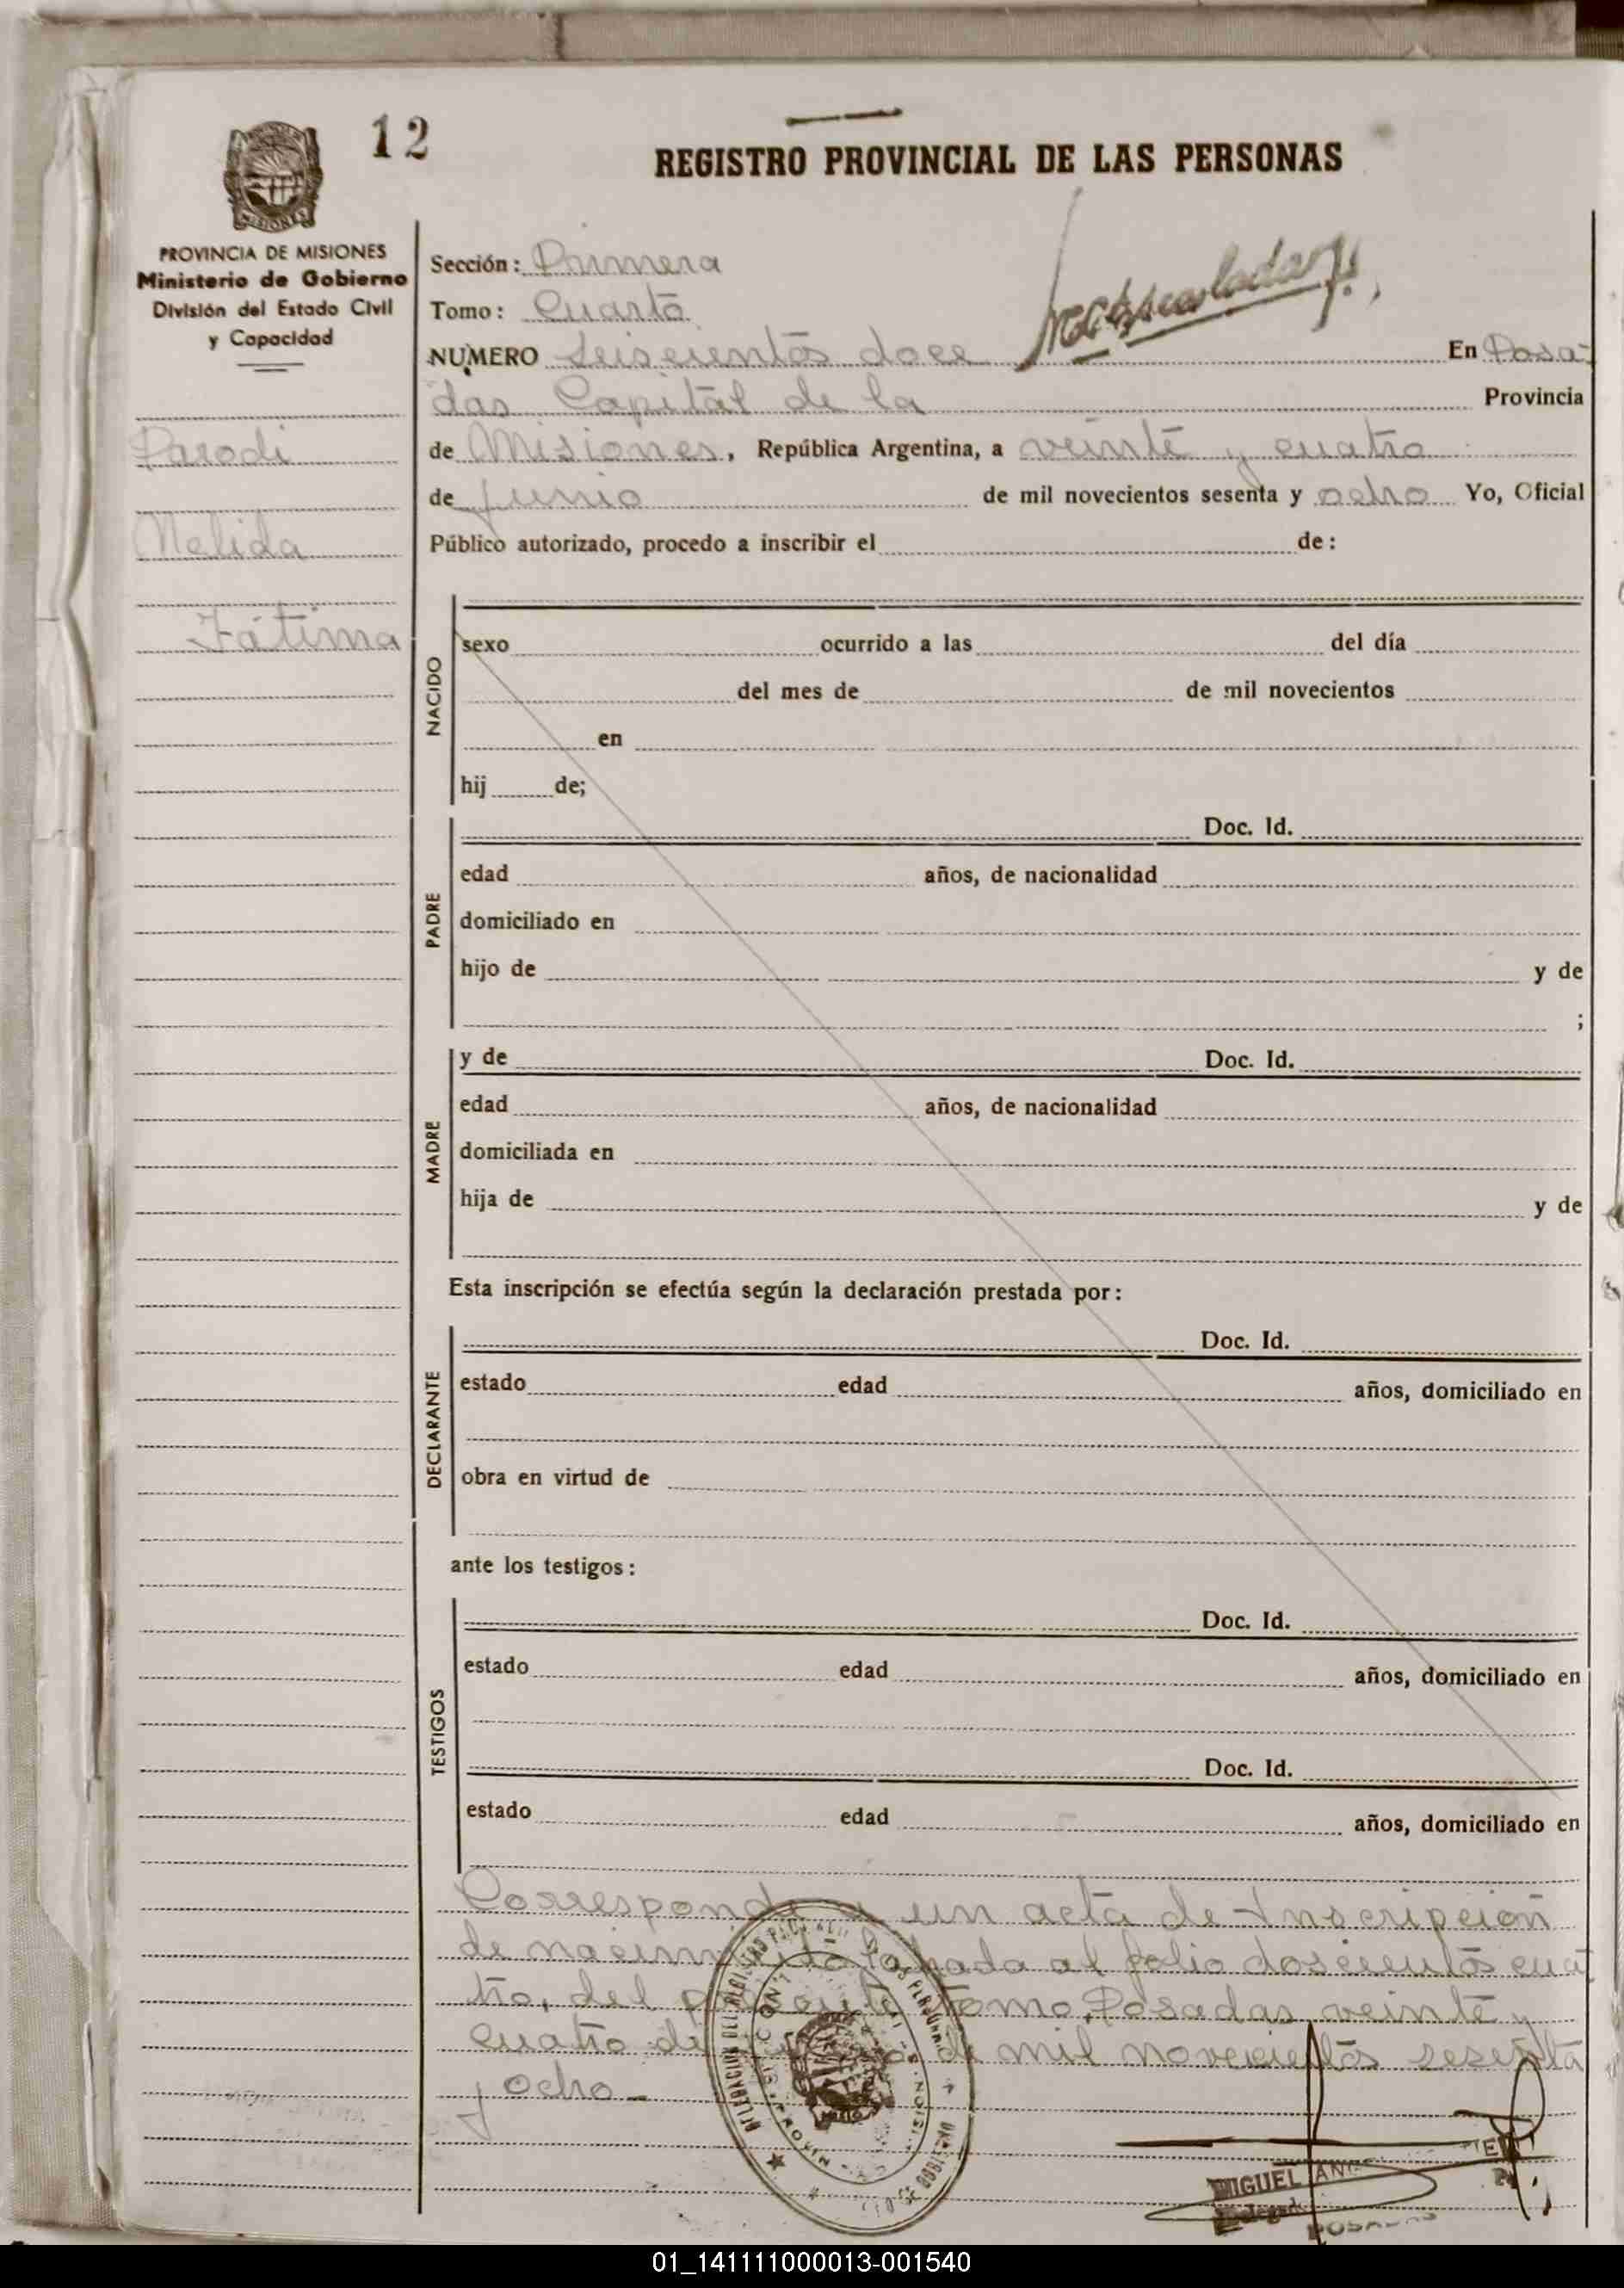 12
REGISTRO PROVINCIAL DE LAS PERSONAS
MISIONES
PROVINCIA DE MISIONES
Ministerio de Gobierno
División del Estado Civil
y Capacidad
Parodi
Nelida
Fátima
Sección: Primera
Tomo: Cuarto
NUMERO Seiscientos doce En Posa-
das Capital de la Provincia
de Misiones, República Argentina, a veinte y cuatro
de junio de mil novecientos sesenta y ocho Yo, Oficial
Público autorizado, procedo a inscribir el de:
NACIDO
sexo ocurrido a las del día
del mes de de mil novecientos
en
hij de;
PADRE
Doc. Id.
edad años, de nacionalidad
domiciliado en
hijo de y de
;
MADRE
y de Doc. Id.
edad años, de nacionalidad
domiciliada en
hija de y de
Esta inscripción se efectúa según la declaración prestada por:
DECLARANTE
Doc. Id.
estado edad años, domiciliado en
obra en virtud de
ante los testigos:
TESTIGOS
Doc. Id.
estado edad años, domiciliado en
Doc. Id.
estado edad años, domiciliado en
Corresponde a un acta de Inscripción
de nacimiento labrada al folio doscientos cua
tro, del presente tomo, Posadas veinte y
cuatro de junio de mil novecientos sesenta
y ocho-
MIGUEL
POSADAS
01_141111000013-001540